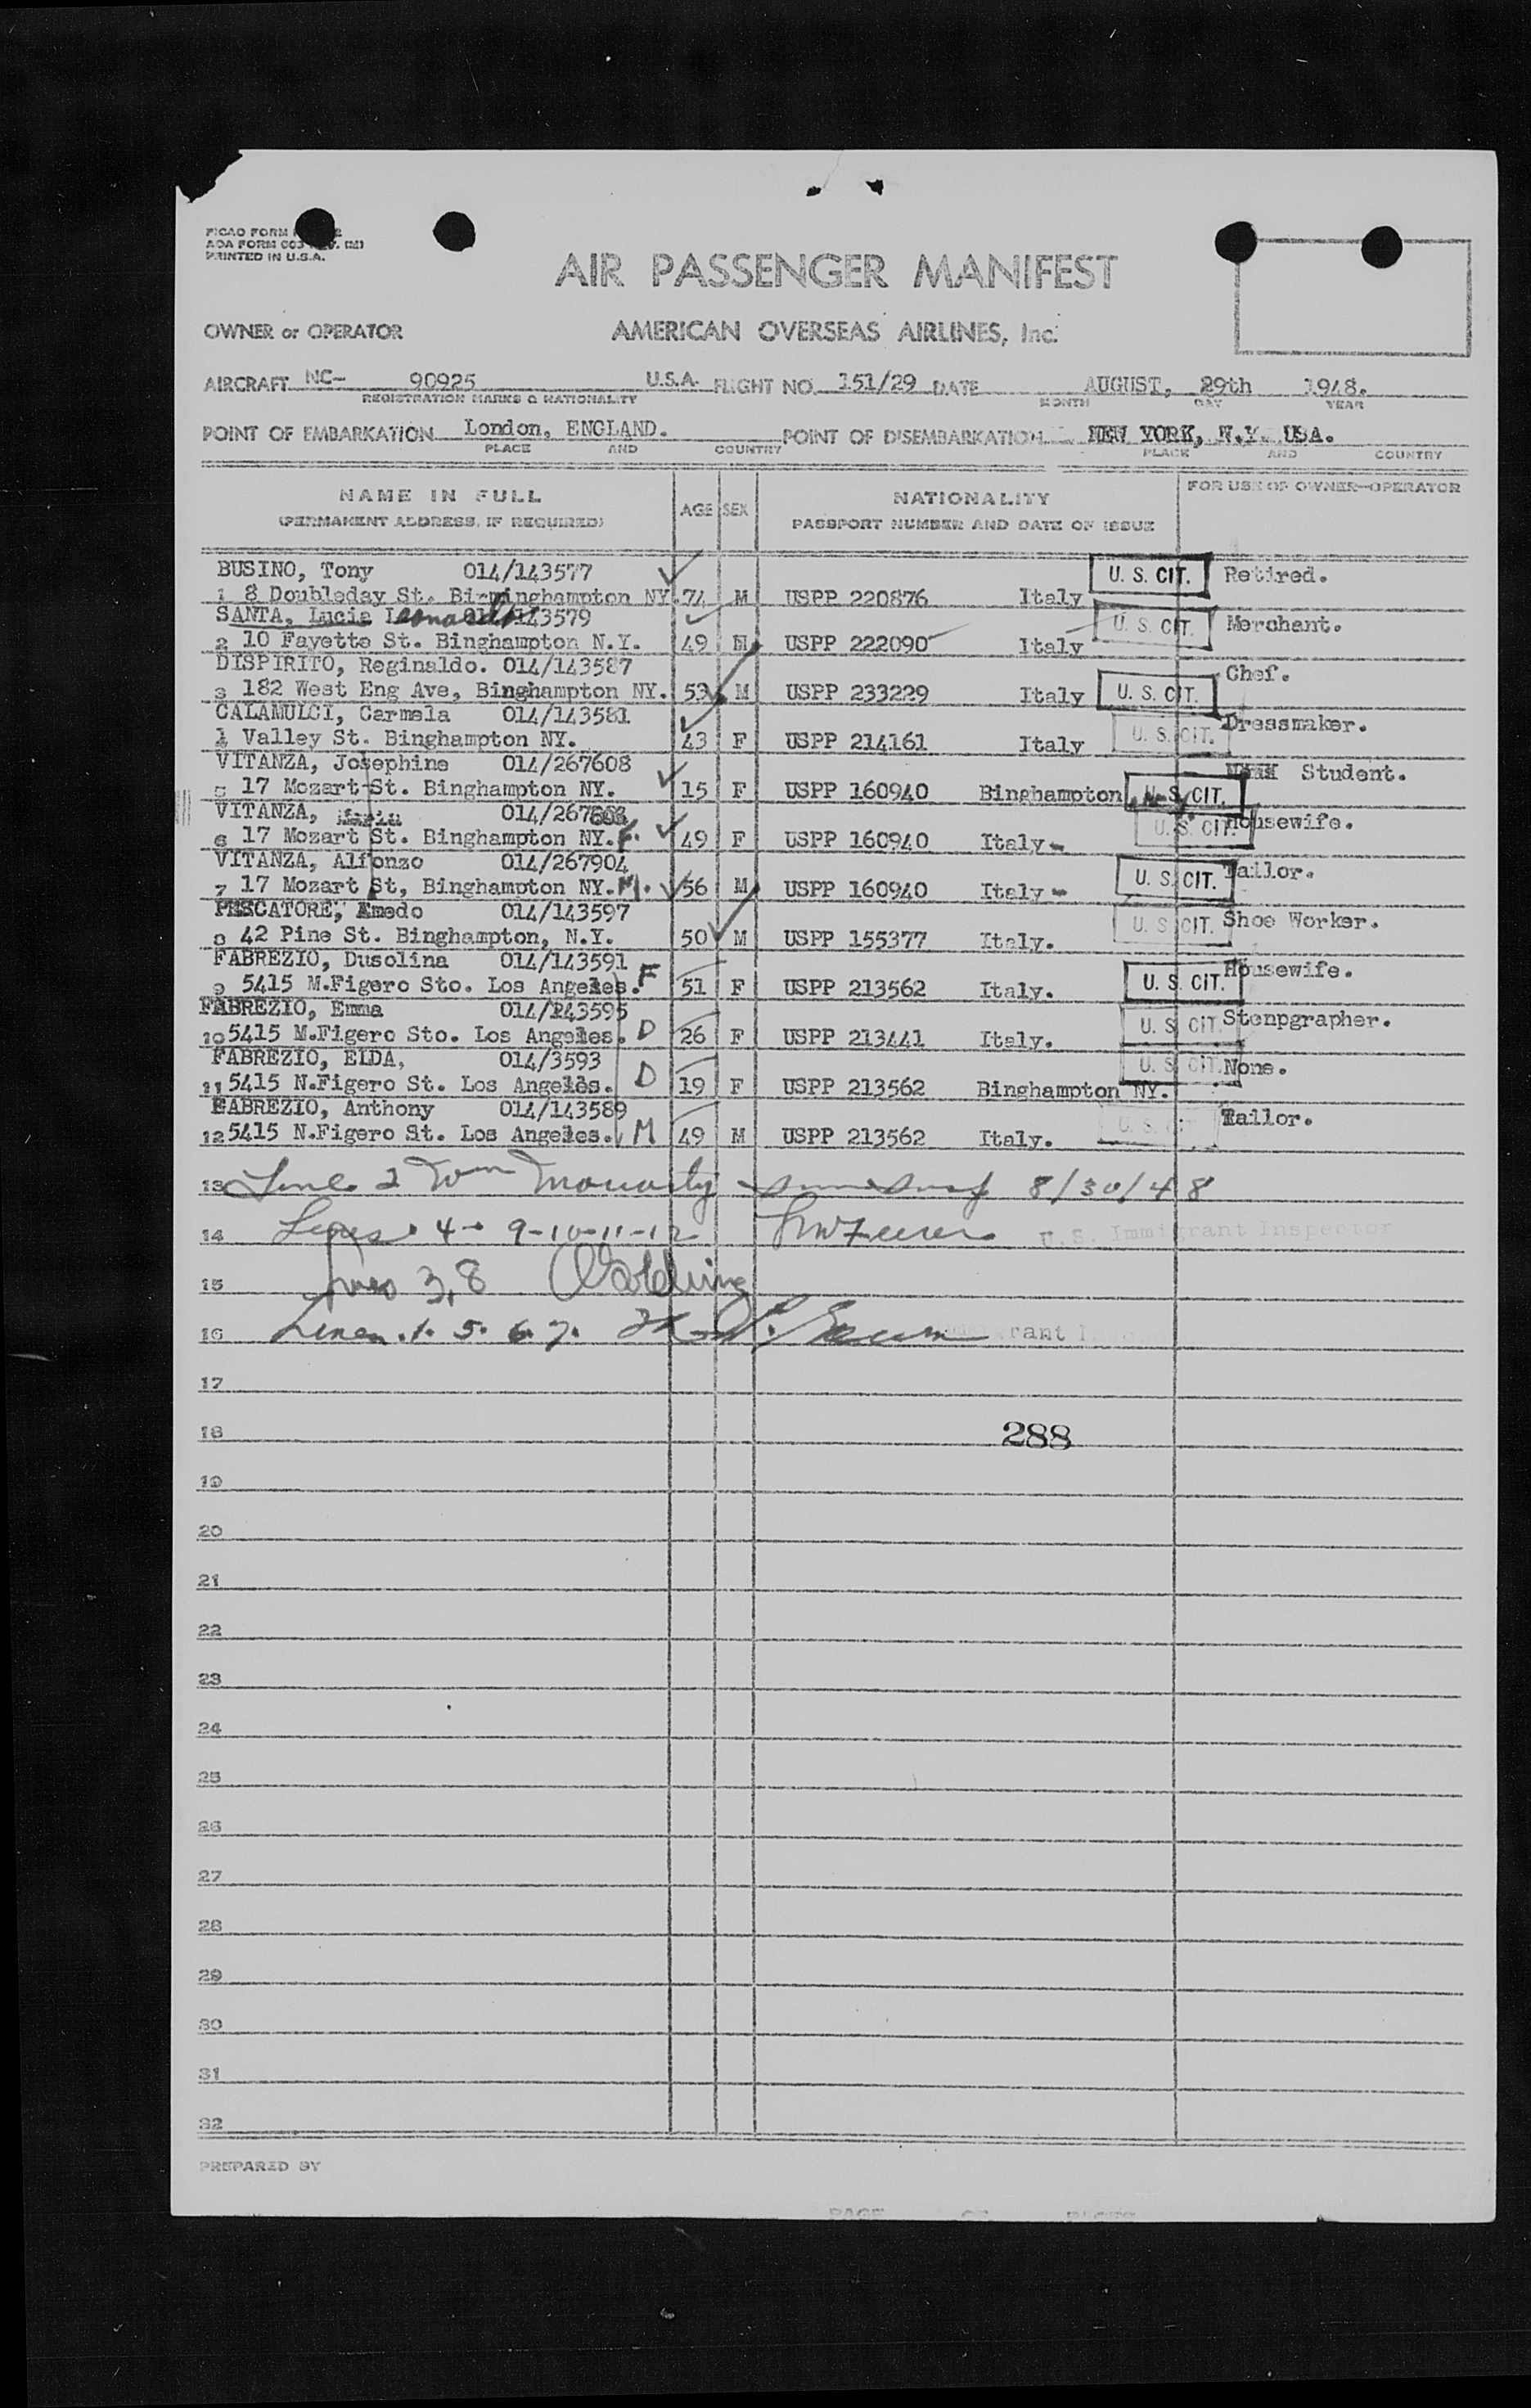 PICAO FORM
AOA FORM 003 REV. (M)
PRINTED IN U.S.A.
AIR PASSENGER MANIFEST
OWNER or OPERATOR AMERICAN OVERSEAS AIRLINES, Inc.
AIRCRAFT NC- 90925 U.S.A. FLIGHT NO. 151/29 DATE AUGUST, 29th 1948.
REGISTRATION MARKS & NATIONALITY MONTH DAY YEAR
POINT OF EMBARKATION London, ENGLAND. POINT OF DISEMBARKATION NEW YORK, N.Y. USA.
PLACE AND COUNTRY PLACE AND COUNTRY
NAME IN FULL AGE SEX NATIONALITY FOR USE OF OWNER-OPERATOR
(PERMANENT ADDRESS, IF REQUIRED) PASSPORT NUMBER AND DATE OF ISSUE
BUSINO, Tony 014/143577 U. S. CIT. Retired.
1 8 Doubleday St. Birminghampton NY 74 M USPP 220876 Italy
SANTA, Lucia Leonardo 014/143579 U. S. CIT. Merchant.
2 10 Fayette St. Binghampton N.Y. 49 M USPP 222090 Italy
DISPIRITO, Reginaldo. 014/143587 Chef.
3 182 West Eng Ave, Binghampton NY. 53 M USPP 233229 Italy U. S. CIT.
CALAMULCI, Carmela 014/143581 Dressmaker.
4 Valley St. Binghampton NY. 43 F USPP 214161 Italy U. S. CIT.
VITANZA, Josephine 014/267608 Student.
5 17 Mozart St. Binghampton NY. 15 F USPP 160940 Binghampton U. S. CIT.
VITANZA, Maria 014/267 U. S. CIT. Housewife.
6 17 Mozart St. Binghampton NY. F. 49 F USPP 160940 Italy
VITANZA, Alfonzo 014/267904 Tailor.
7 17 Mozart St, Binghampton NY. M. 56 M USPP 160940 Italy U. S. CIT.
PESCATORE, Amedo 014/143597 Shoe Worker.
8 42 Pine St. Binghampton, N.Y. 50 M USPP 155377 Italy. U. S. CIT.
FABREZIO, Dusolina 014/143591 Housewife.
9 5415 M.Figero Sto. Los Angeles. F 51 F USPP 213562 Italy. U. S. CIT.
FABREZIO, Emma 014/143595 Stenpgrapher.
10 5415 M.Figero Sto. Los Angeles. D 26 F USPP 213441 Italy. U. S. CIT.
FABREZIO, EIDA, 014/3593 U. S. CIT. None.
11 5415 N.Figero St. Los Angeles. D 19 F USPP 213562 Binghampton NY.
FABREZIO, Anthony 014/143589 Tailor.
12 5415 N.Figero St. Los Angeles. M 49 M USPP 213562 Italy. U. S. CIT.
13 Line 2 Wm Moriarty 8/30/48
14 Lines 4- 9-10-11-12 U.S. Immigrant Inspector
15 Lines 3,8 Golding
16 Lines. 1. 5. 6. 7.
17
18 288
19
20
21
22
23
24
25
26
27
28
29
30
31
32
PREPARED BY
PAGE OF PAGES